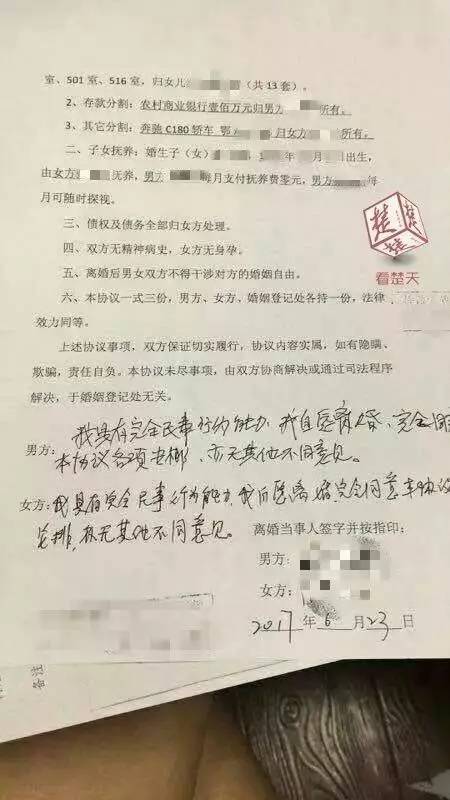 室、501室、516室，归女儿（共13套）。
2、存款分割：农村商业银行壹佰万元归男方所有。
3、其它分割：奔驰C180轿车 鄂归女方所有。
二、子女抚养：婚生子（女），年月日出生，
由女方抚养，男方每月支付抚养费零元，男方每
月可随时探视。
三、债权及债务全部归女方处理。
四、双方无精神病史，女方无身孕。
五、离婚后男女双方不得干涉对方的婚姻自由。
六、本协议一式三份，男方、女方、婚姻登记处各持一份，法律
效力同等。
上述协议事项，双方保证切实履行，协议内容实属，如有隐瞒、
欺骗，责任自负。本协议未尽事项，由双方协商解决或通过司法程序
解决，于婚姻登记处无关。
男方：我具有完全民事行为能力，我自愿离婚，完全同
本协议各项安排，亦无其他不同意见。
女方：我具有完全民事行为能力，我自愿离婚，完全同意本协议
安排，亦无其他不同意见。
离婚当事人签字并按指印：
男方：
女方：
2017年6月23日
楚
看楚天
备注